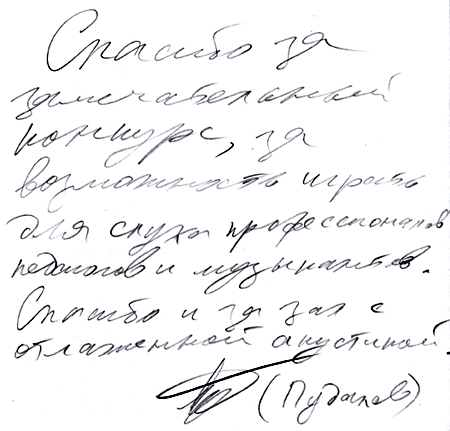 Спасибо за
замечательный
конкурс, за
возможность играть
для слуха профессионалов
педагогов и музыкантов.
Спасибо и за зал с
отлаженной акустикой.
(Пудалов)